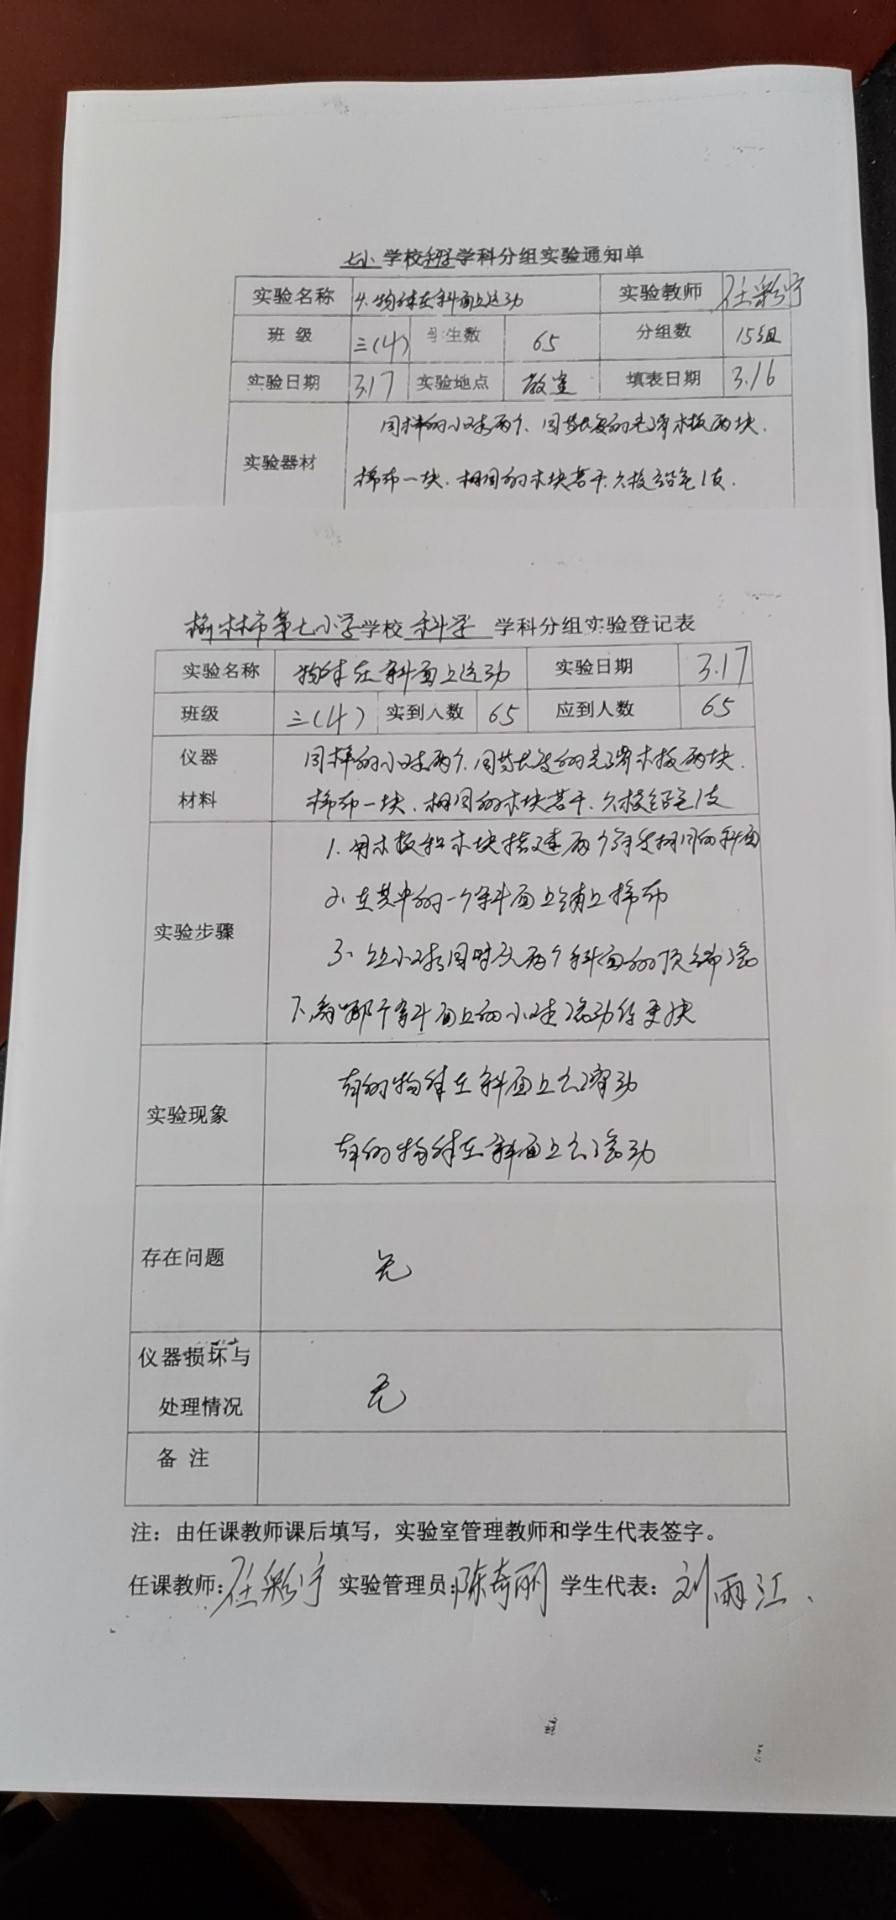 七小 学校 科学 学科分组实验通知单
实验名称 4.物体在斜面上运动 实验教师 任彩宁
班 级 三(4) 学生数 65 分组数 15组
实验日期 3.17 实验地点 教室 填表日期 3.16
实验器材 同样的小球两个、同等长度的光滑木板两块、
棉布一块、相同的木块若干、六棱铅笔1支.
榆林市第七小学 学校 科学 学科分组实验登记表
实验名称 物体在斜面上运动 实验日期 3.17
班级 三(4) 实到人数 65 应到人数 65
仪器 同样的小球两个、同等长度的光滑木板两块、
材料 棉布一块、相同的木块若干、六棱铅笔1支
1. 用木板和木块搭建两个角度相同的斜面
2. 在其中的一个斜面上铺上棉布
实验步骤
3、让小球同时从两个斜面的顶端滚
下,看哪个斜面上的小球滚动得更快
有的物体在斜面上会滑动
实验现象
有的物体在斜面上会滚动
存在问题 无
仪器损坏与
处理情况 无
备 注
注：由任课教师课后填写，实验室管理教师和学生代表签字。
任课教师: 任彩宁 实验管理员: 陈奇丽 学生代表: 刘雨江